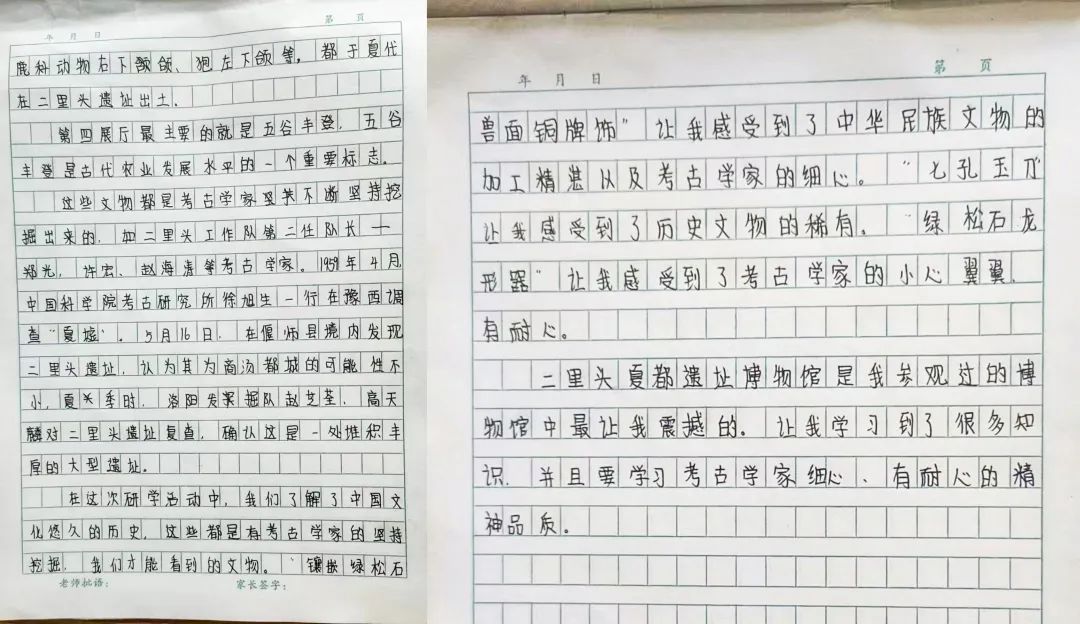 年 月 日
第 页
鹿科动物右下颌颌、狍左下颌等，都于夏代
在二里头遗址出土．
第四展厅最主要的就是五谷丰登．五谷
丰登是古代农业发展水平的一个重要标志。
这些文物都是考古学家坚持不断坚持挖
掘出来的．如二里头工作队第二任队长——
郑光，许宏、赵海涛等考古学家。1959年4月
中国科学院考古研究所徐旭生一行在豫西调
查“夏墟”。5月16日．在偃师县境内发现
二里头遗址，认为其为商汤都城的可能性不
小，夏季时．洛阳发掘队赵芝荃、高天
麟对二里头遗址复查．确认这是一处堆积丰
厚的大型遗址。
在这次研学活动中，我们了解了中国文
化悠久的历史，这些都是有考古学家的坚持
挖掘．我们才能看到的文物。“镶嵌绿松石
老师批语：
家长签字：
年 月 日
第 页
兽面铜牌饰”让我感受到了中华民族文物的
加工精湛以及考古学家的细心。“七孔玉刀”
让我感受到了历史文物的稀有。“绿松石龙
形器”让我感受到了考古学家的小心翼翼．
有耐心。
二里头夏都遗址博物馆是我参观过的博
物馆中最让我震撼的．让我学习到了很多知
识．并且要学习考古学家细心、有耐心的精
神品质。